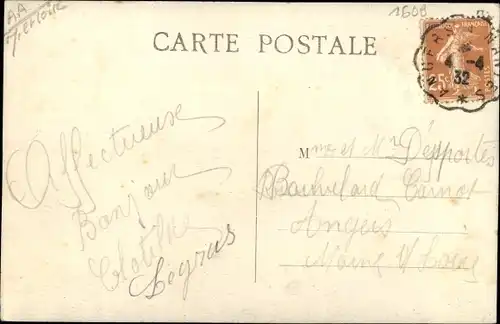 1508
CARTE POSTALE
25c
4-4
32
Affectueuse
Bonjour
Clotilde
Legras
Mme et Mr Desportes
Boulevard Carnot
Angers
Maine & Loire